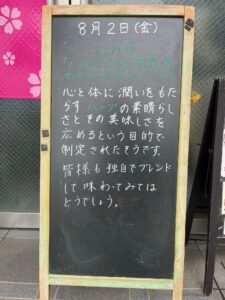 8月2日(金)
心と体に潤いをもた
らすハーブの素晴らし
さとその美味しさを
広めるという目的で
制定されたそうです。
皆様も独自でブレンド
して味わってみては
どうでしょう。